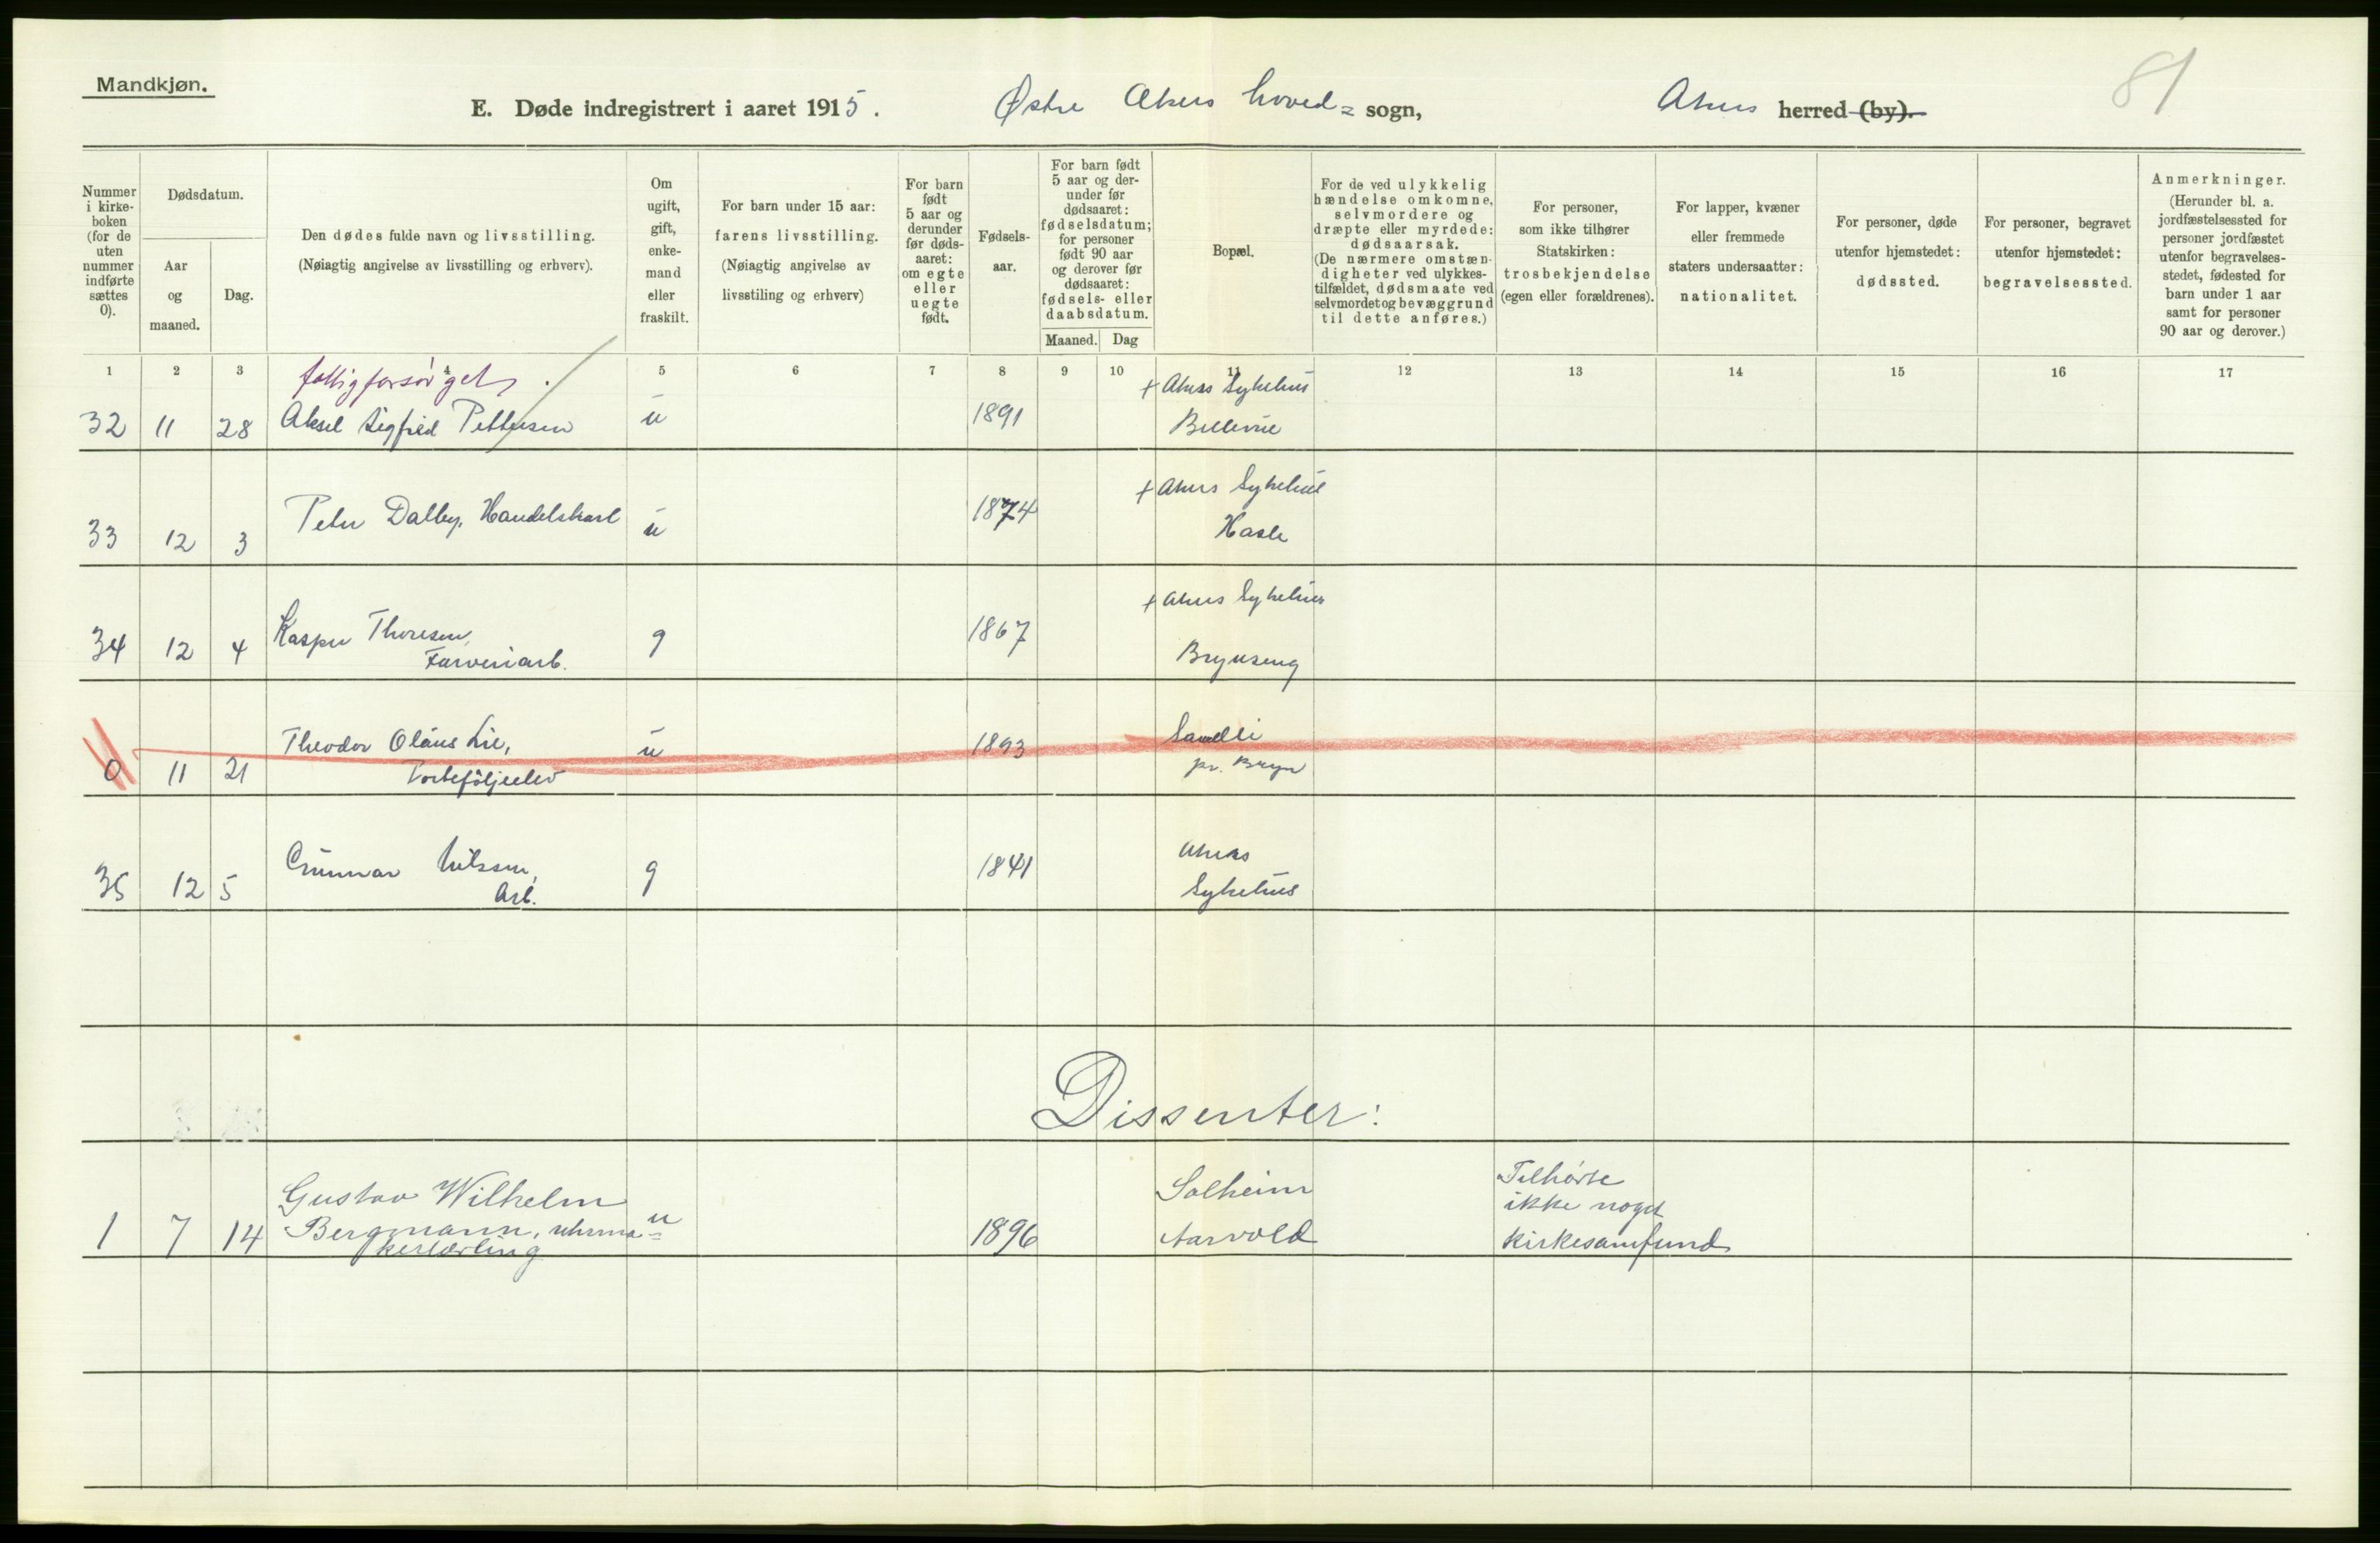 Mandkjøn.
81
E. Døde indregistrert i aaret 1915. Østre Akers hoved= sogn, Akers herred (by).
Nummer i kirke-boken (for de uten nummer indførte sættes 0).
Dødsdatum.
Aar og maaned.
Dag.
Den dødes fulde navn og livsstilling.
(Nøiagtig angivelse av livsstilling og erhverv).
Om ugift, gift, enke-mand eller fraskilt.
For barn under 15 aar: farens livsstilling.
(Nøiagtig angivelse av livsstiling og erhverv)
For barn født 5 aar og derunder før døds-aaret: om egte eller uegte født.
Fødsels-aar.
For barn født 5 aar og der-under før dødsaaret: fødselsdatum; for personer født 90 aar og derover før dødsaaret: fødsels- eller daabsdatum.
Maaned. Dag
Bopæl.
For de ved ulykkelig hændelse omkomne, selvmordere og dræpte eller myrdede: dødsaarsak.
(De nærmere omstæn-digheter ved ulykkes-tilfældet, dødsmaate ved selvmordet og bevæggrund til dette anføres.)
For personer, som ikke tilhører Statskirken: trosbekjendelse (egen eller forældrenes).
For lapper, kvæner eller fremmede staters undersaatter: nationalitet.
For personer, døde utenfor hjemstedet: dødssted.
For personer, begravet utenfor hjemstedet: begravelsessted.
Anmerkninger.
(Herunder bl. a. jordfæstelsessted for personer jordfæstet utenfor begravelses-stedet, fødested for barn under 1 aar samt for personer 90 aar og derover.)
1 2 3 4 5 6 7 8 9 10 11 12 13 14 15 16 17
fattigforsørget + Akers Sykehus
32 11 28 Aksel Sigfred Pettersen u 1891 Bellevue
+ Akers Sykehus
33 12 3 Peter Dalby, Handelskarl u 1874 Hasle
+ Akers Sykehus
34 12 4 Kasper Thoresen, g 1867
Farveriarb. Brynseng
Theodor Olaus Lie, u 1893
0 11 21 Portefòljeelev pr. Bryn
Gunnar Nilssen, g 1841 Akers
35 12 5 Arb. Sykehus
Dissenter:
Gustav Wilhelm Solheim Tilhørte
ikke noget
1 7 14 Bergmann, uhrma= u 1896 Aarvold kirkesamfund
kerlærling